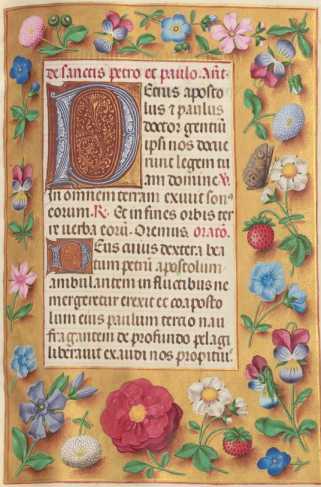 de sanctis petro et paulo. Ant.
Petrus aposto
lus & paulus
doctor gentiū
ipsi nos docue
runt legem tu
am domine ℣.
in omnem terram exivit sonꝰ
eorum. ℟. Et in fines orbis ter
re verba eorū. Oremus. oratō.
Deus cuius dextera bea
tum petrū apostolum
ambulantem in fluctibus ne
mergeretur erexit et coaposto
lum eius paulum tercio nau
fragantem de profundo pelagi
liberavit exaudi nos propitiū